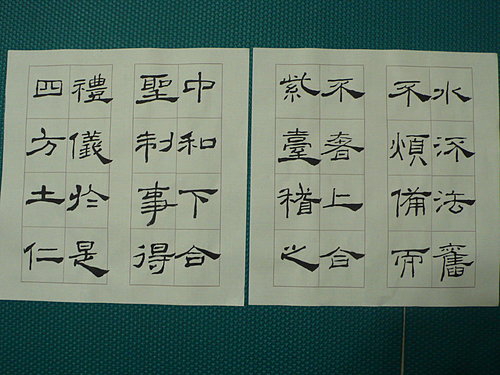 水流法舊
不煩備而
不奢上合
紫臺稽之
中和下合
聖制事得
禮儀於是
四方土仁